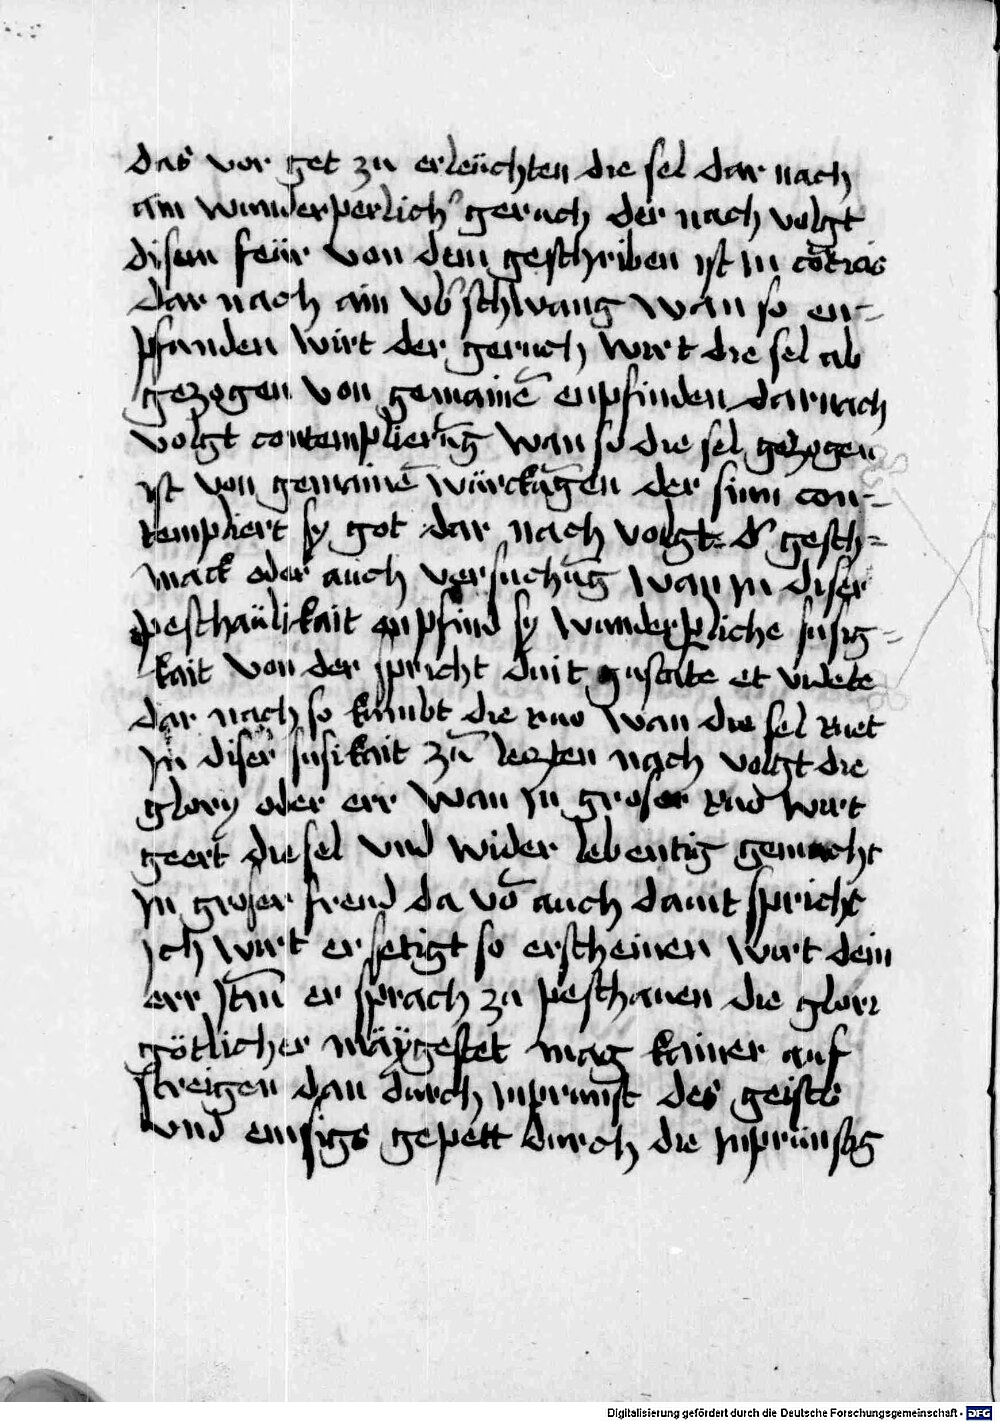 das vor get zu erleüchten die sel dar nach
ain wunderperlich' geruch der nach volgt
disem feür von dem geschriben ist in
dar nach ain vb' schwang wan so en-
pfunden wirt der geruch wirt die sel ab
gezogen von gemainē enpfinden darnach
volgt contemplierūg wan so die sel gezogen
ist von gemainē würckūgen der sinn con-
templiert sy got dar nach volgt d' gesch=
mack oder auch versuchūg wan in diser
peschäulikait enpfind sy wunderperliche susig=
kait von der spricht dauit gustate et videte
dar nach so kumbt die ruo wan die sel ruet
in diser susikait zū leczten nach volgt die
glory oder err wan in groser ruo wirt
geert die sel vnd wider lebentig gemacht
in groser freud da vō auch dauit spricht
ich wirt ersetigt so erscheinen wirt dein
err Itm̄ er sprach zu peschauen die glori
götlicher mäÿgestet mag kainer auf
streigen dan durch inprunst des geists
vnd emsigs gepett durch die inprünstig